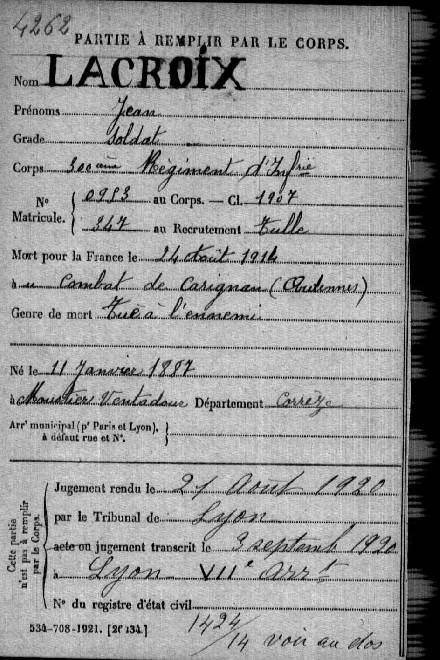 4262
PARTIE À REMPLIR PAR LE CORPS.
Nom LACROIX
Prénoms Jean
Grade Soldat
Corps 300ème Régiment d'Infrie
N° 0983 au Corps. — Cl. 1907
Matricule. 347 au Recrutement Tulle
Mort pour la France le 24 Août 1914
à u Combat de Carignan (Ardennes)
Genre de mort Tué à l'ennemi
Né le 11 Janvier 1887
à Moustier Ventadour Département Corrèze
Arrt municipal (pr Paris et Lyon),
à défaut rue et N°.
Cette partie
n'est pas à remplir
par le Corps.
Jugement rendu le 21 Aout 1920
par le Tribunal de Lyon
acte ou jugement transcrit le 3 septemb 1920
à Lyon VIIe Arrt
N° du registre d'état civil
534-708-1921. [26434.]
1424/14 voir au dos